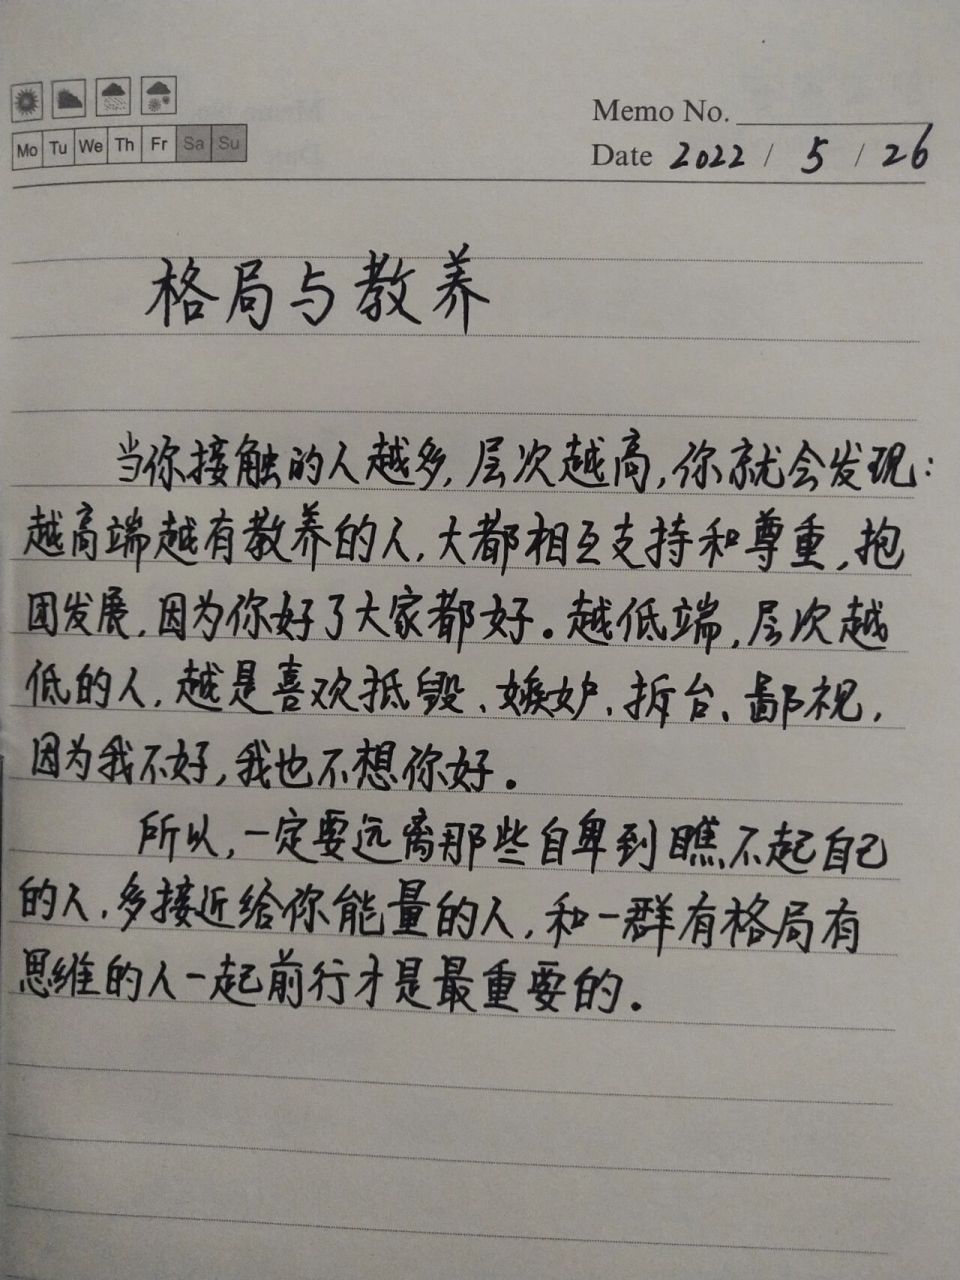 Mo Tu We Th Fr Sa Su
Memo No.
Date 2022 / 5 / 26
格局与教养
当你接触的人越多,层次越高,你就会发现:
越高端越有教养的人,大都相互支持和尊重,抱
团发展,因为你好了大家都好。越低端,层次越
低的人,越是喜欢抵毁、嫉妒、拆台、鄙视,
因为我不好,我也不想你好。
所以,一定要远离那些自卑到瞧不起自己
的人,多接近给你能量的人,和一群有格局有
思维的人一起前行才是最重要的。